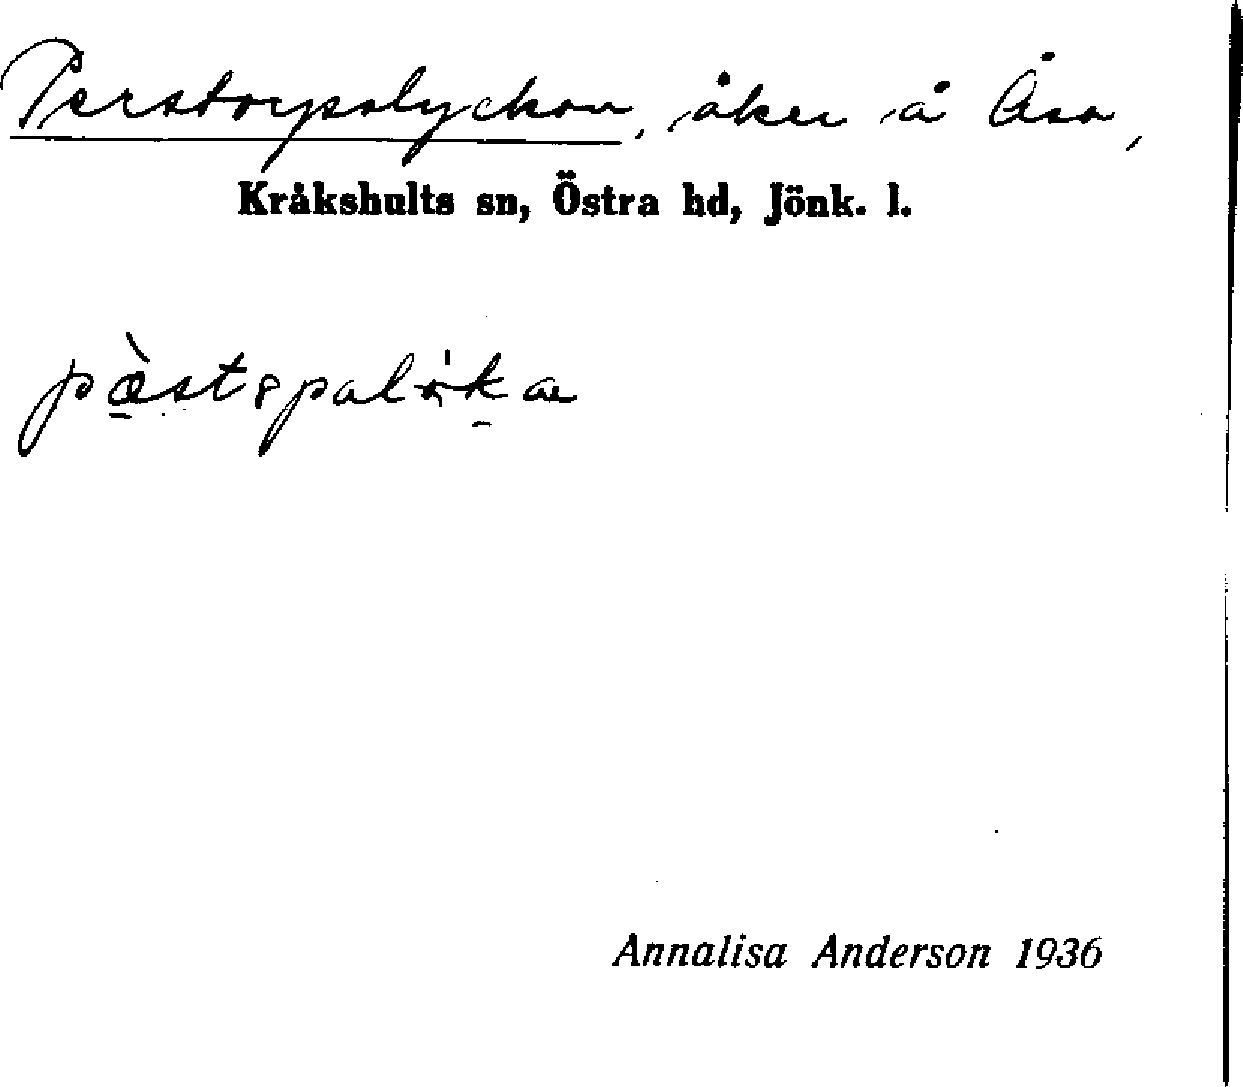 Perstorpslyckan, åker å Åsa,
Kråkshults sn, Östra hd, Jönk. l.
Annalisa Anderson 1936